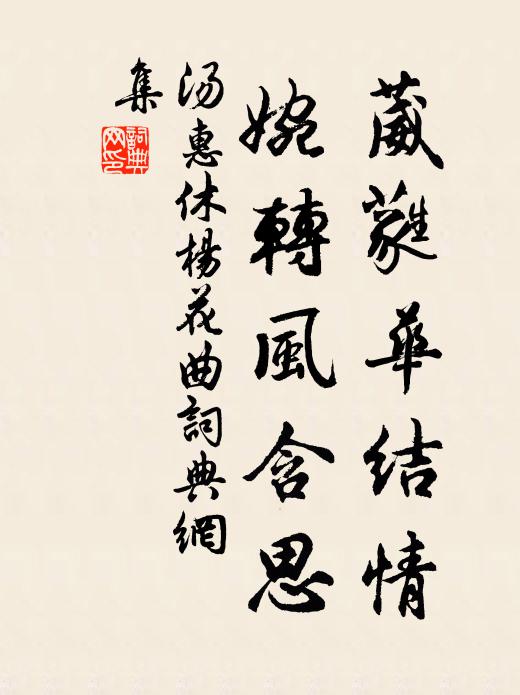 葳蕤華結情
婉轉風含思
汤惠休楊花曲詞典網
集
詞典網印